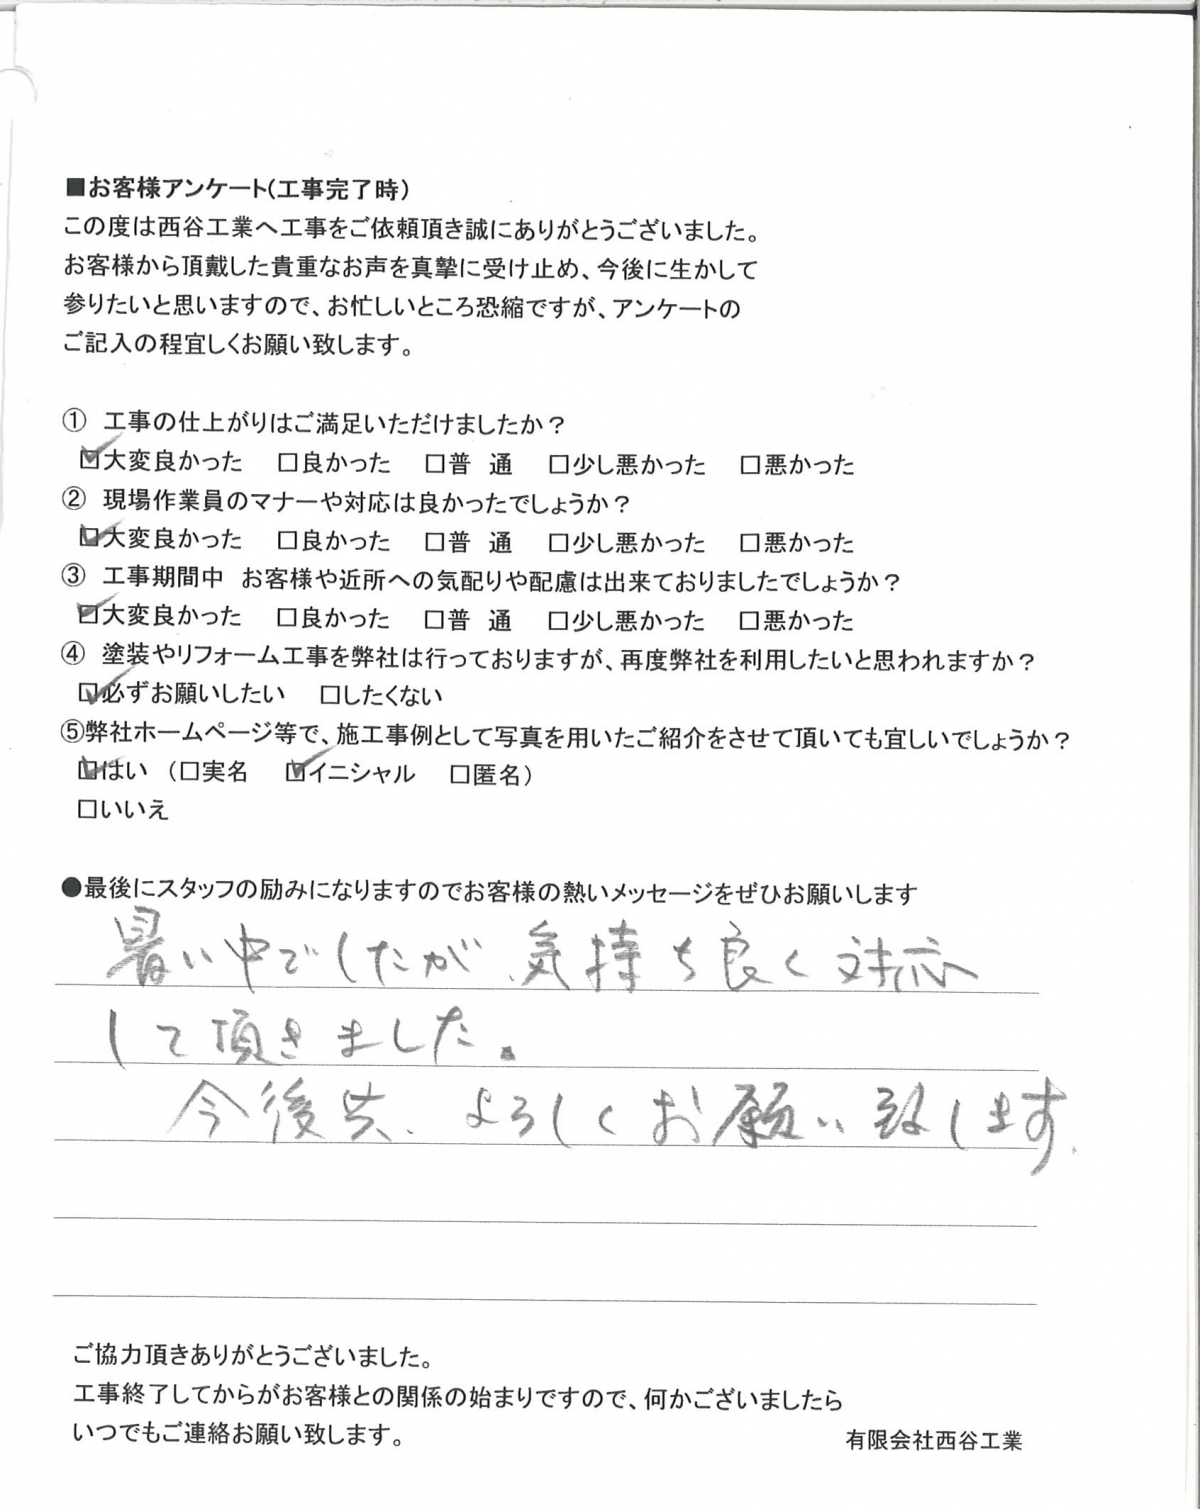 ■お客様アンケート(工事完了時)
この度は西谷工業へ工事をご依頼頂き誠にありがとうございました。
お客様から頂戴した貴重なお声を真摯に受け止め、今後に生かして
参りたいと思いますので、お忙しいところ恐縮ですが、アンケートの
ご記入の程宜しくお願い致します。
① 工事の仕上がりはご満足いただけましたか?
☑大変良かった □良かった □普 通 □少し悪かった □悪かった
② 現場作業員のマナーや対応は良かったでしょうか?
☑大変良かった □良かった □普 通 □少し悪かった □悪かった
③ 工事期間中 お客様や近所への気配りや配慮は出来ておりましたでしょうか?
☑大変良かった □良かった □普 通 □少し悪かった □悪かった
④ 塗装やリフォーム工事を弊社は行っておりますが、再度弊社を利用したいと思われますか?
☑必ずお願いしたい □したくない
⑤弊社ホームページ等で、施工事例として写真を用いたご紹介をさせて頂いても宜しいでしょうか?
☑はい (□実名 ☑イニシャル □匿名)
□いいえ
●最後にスタッフの励みになりますのでお客様の熱いメッセージをぜひお願いします
暑い中でしたが、気持ち良く対応
して頂きました。
今後共、よろしくお願い致します。
ご協力頂きありがとうございました。
工事終了してからがお客様との関係の始まりですので、何かございましたら
いつでもご連絡お願い致します。
有限会社西谷工業